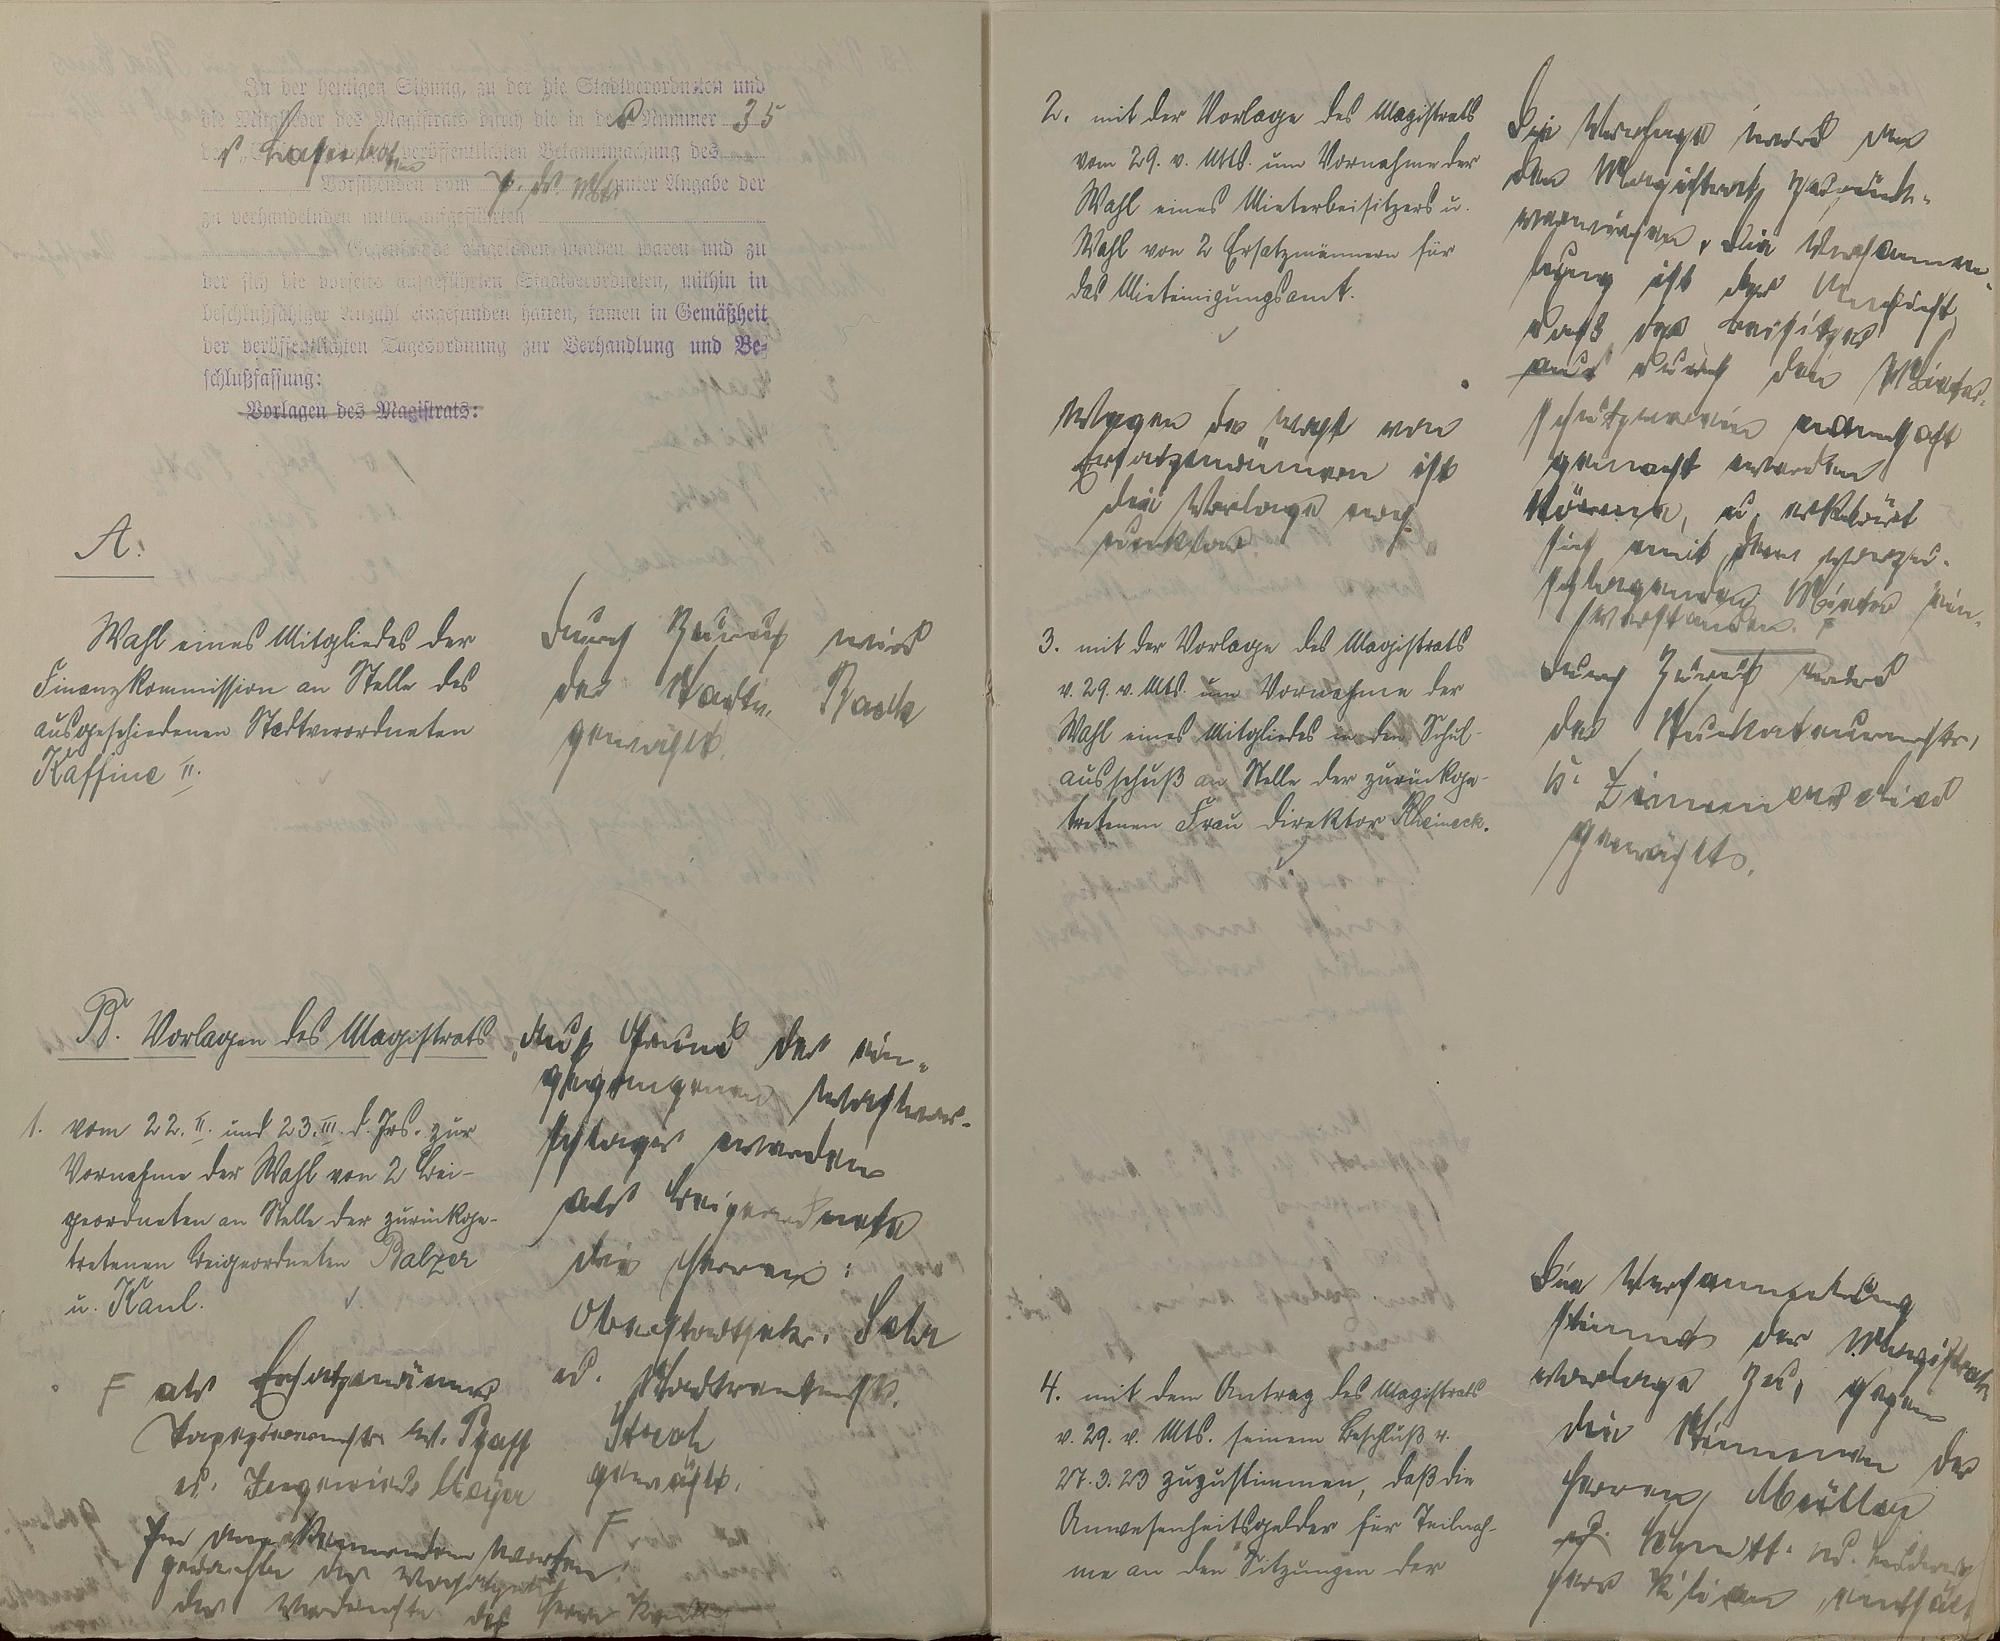 In der heutigen Sitzung, zu der die Stadtverordneten und
die Mitglieder des Magistrats durch die in der Nummer 35
der veröffentlichten Bekanntmachung des
Vorsitzenden vom 7. ds. Mts. unter Angabe der
zu verhandelnden unten aufgeführten
Gegenstände eingeladen worden waren und zu
der sich die vorseits aufgeführten Stadtverordneten, mithin in
beschlußfähiger Anzahl eingefunden hatten, kamen in Gemäßheit
der veröffentlichten Tagesordnung zur Verhandlung und Be-
schlußfassung:
Vorlagen des Magistrats:
A.
Wahl eines Mitgliedes der
Finanzkommission an Stelle des
ausgeschiedenen Stadtverordneten
Kaffine II.
Durch Zuruf wird
der Stadtv. Back
gewählt.
B. Vorlagen des Magistrats
1. vom 22.II. und 23.III. d. Jrs. zur
Vornahme der Wahl von 2 Bei-
geordneten an Stelle der zurückge-
tretenen Beigeordneten Balzer
u. Kaul.
F als Ersatzmänner
u. Ingenieur Mayer
der Verdienste des Herrn
Auf Grund der ein-
gegangenen Wahlvor-
schläge werden
als Beigeordnete
die Herren:
Oberstadtsekr.
u. Stadtrentmstr.
gewählt.
F
2. mit der Vorlage des Magistrats
vom 29. v. Mts. um Vornahme der
Wahl eines Mieterbeisitzers u.
Wahl von 2 Ersatzmännern für
das Mieteinigungsamt.
Wegen der Wahl von
Ersatzmännern ist
die Vorlage noch
unklar
Die Vorlage wird an
den Magistrat zurück-
verwiesen, die Versamm-
lung ist der Ansicht,
daß der Beisitzer
aus durch den Mieter-
schutzverein namhaft
gemacht werden
könnte, u. erklärt
sich mit dem vorzu-
schlagenden Mieter ein-
verstanden.
3. mit der Vorlage des Magistrats
v. 29. v. Mts. um Vornahme der
Wahl eines Mitgliedes in den Schul-
ausschuß an Stelle der zurückge-
tretenen Frau Direktor Rheineck.
Durch Zuruf wird
der
Zimmermann
gewählt.
4. mit dem Antrag des Magistrats
v. 29. v. Mts. seinem Beschluß v.
27.3.23 zuzustimmen, daß die
Anwesenheitsgelder für Teilnah-
me an den Sitzungen der
Die Versammlung
stimmt der Magistrats
vorlage zu, gegen
die Stimmen der
Herren Müller
u. Schmitt.
Herr Kilian enthält